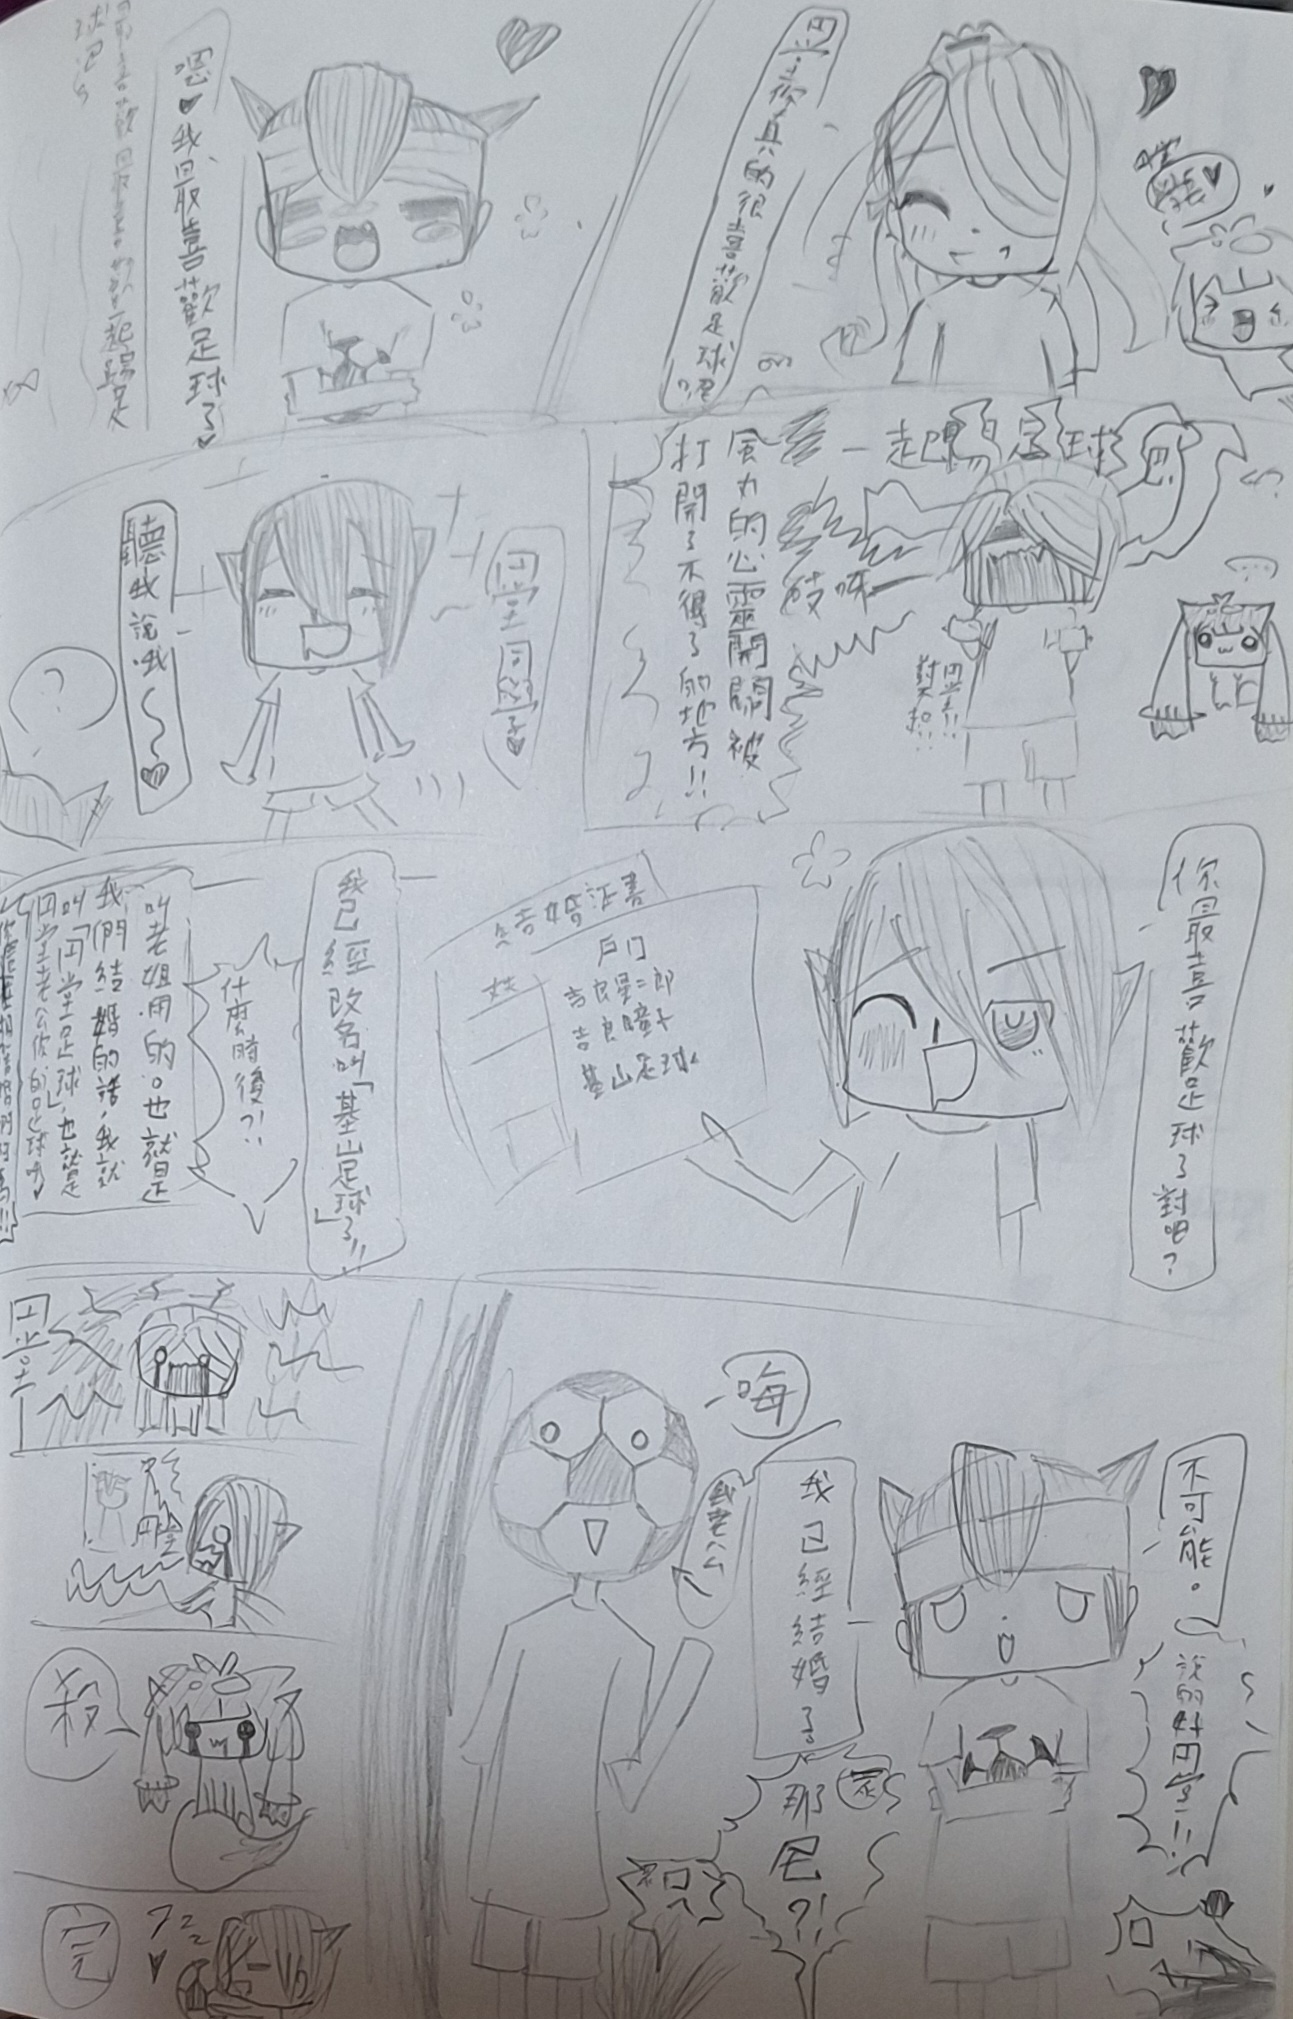 円堂你真的很喜歡足球呢
嗯♥我最喜歡足球了♥
最喜歡最喜歡一起踢足
球吧
一起踢足球
風丸的心靈開關被
打開了不得了的地方!!
円堂!!
円堂同學♥
聽我說哦～♥
?
你最喜歡足球了對吧?
結婚证書
戶口
吉良星二郎
吉良瞳子
基山足球
我已經改名叫「基山足球」了!!
什麼時後?!
叫老姐用的。也就是
我們結婚的話,我就
叫「円堂足球」也就是
円堂老公你的足球哦♥
不可能。
說的好円堂!!
我已經結婚了
那尼?!
嗨
我老公
円堂
殺
完